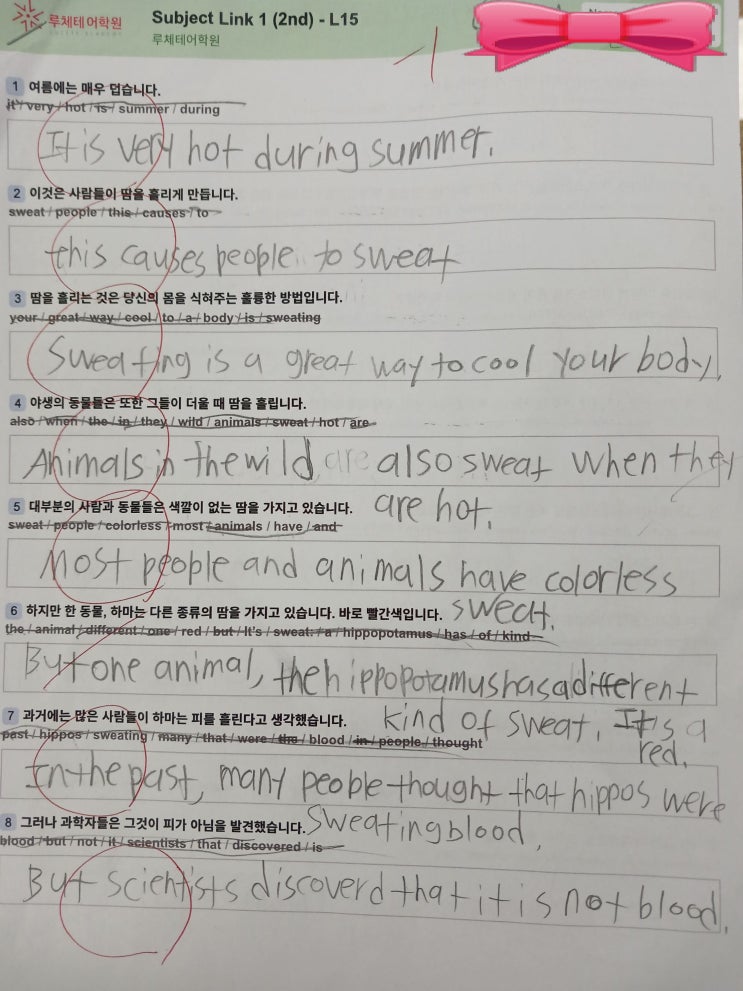 루체테어학원
Subject Link 1 (2nd) - L15
루체테어학원
-1
1 여름에는 매우 덥습니다.
it's / very / hot / is / summer / during
It is very hot during summer.
2 이것은 사람들이 땀을 흘리게 만듭니다.
sweat / people / this / causes / to
this causes people to sweat
3 땀을 흘리는 것은 당신의 몸을 식혀주는 훌륭한 방법입니다.
your / great / way / cool / to / a / body / is / sweating
Sweating is a great way to cool your body.
4 야생의 동물들은 또한 그들이 더울 때 땀을 흘립니다.
also / when / the / in / they / wild / animals / sweat / hot / are
Animals in the wild are also sweat when they
are hot.
5 대부분의 사람과 동물들은 색깔이 없는 땀을 가지고 있습니다.
sweat / people / colorless / most / animals / have / and
Most people and animals have colorless
sweat.
6 하지만 한 동물, 하마는 다른 종류의 땀을 가지고 있습니다. 바로 빨간색입니다.
the / animal / different / one / red / but / It's / sweat: / a / hippopotamus / has / of / kind
But one animal, the hippopotamus has a different
kind of sweat. It's a
red.
7 과거에는 많은 사람들이 하마는 피를 흘린다고 생각했습니다.
past / hippos / sweating / many / that / were / the / blood / in / people / thought
In the past, many people thought that hippos were
sweating blood.
8 그러나 과학자들은 그것이 피가 아님을 발견했습니다.
blood / but / not / it / scientists / that / discovered / is
But scientists discoverd that it is not blood.